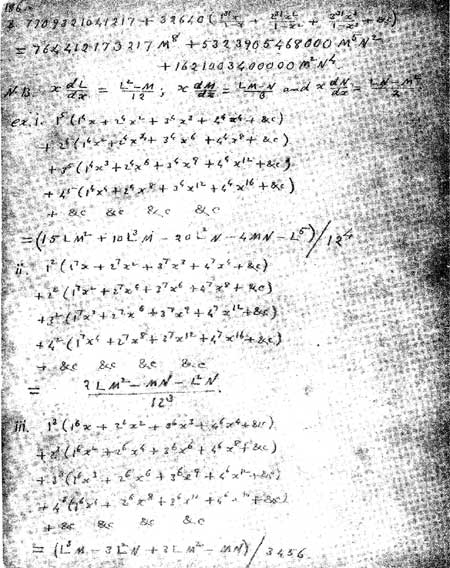 186.
8. 7709321041217 + 32640 (1³¹x/1−x + 2³¹x²/1−x² + 3³¹x³/1−x³ + &c)
= 764412173217 M⁸ + 5323905468000 M⁵N²
+ 1621003400000 M²N⁴.
N.B. x dL/dx = L²−M/12 ; x dM/dx = LM−N/3 and x dN/dx = LN−M²/2
ex. i. 1⁵(1⁴x + 2⁴x² + 3⁴x³ + 4⁴x⁴ + &c)
+ 2⁵(1⁴x² + 2⁴x⁴ + 3⁴x⁶ + 4⁴x⁸ + &c)
+ 3⁵(1⁴x³ + 2⁴x⁶ + 3⁴x⁹ + 4⁴x¹² + &c)
+ 4⁵(1⁴x⁴ + 2⁴x⁸ + 3⁴x¹² + 4⁴x¹⁶ + &c)
+ &c &c &c &c
= (15LM² + 10L³M − 20L²N − 4MN − L⁵)/12⁴
ii. 1²(1⁷x + 2⁷x² + 3⁷x³ + 4⁷x⁴ + &c)
+ 2²(1⁷x² + 2⁷x⁴ + 3⁷x⁶ + 4⁷x⁸ + &c)
+ 3²(1⁷x³ + 2⁷x⁶ + 3⁷x⁹ + 4⁷x¹² + &c)
+ 4²(1⁷x⁴ + 2⁷x⁸ + 3⁷x¹² + 4⁷x¹⁶ + &c)
+ &c &c &c &c
= 2LM² − MN − L²N/12³.
iii. 1³(1⁶x + 2⁶x² + 3⁶x³ + 4⁶x⁴ + &c)
+ 2³(1⁶x² + 2⁶x⁴ + 3⁶x⁶ + 4⁶x⁸ + &c)
+ 3³(1⁶x³ + 2⁶x⁶ + 3⁶x⁹ + 4⁶x¹² + &c)
+ 4³(1⁶x⁴ + 2⁶x⁸ + 3⁶x¹² + 4⁶x¹⁶ + &c)
+ &c &c &c &c
= (L³M − 3L²N + 3LM² − MN)/3456.